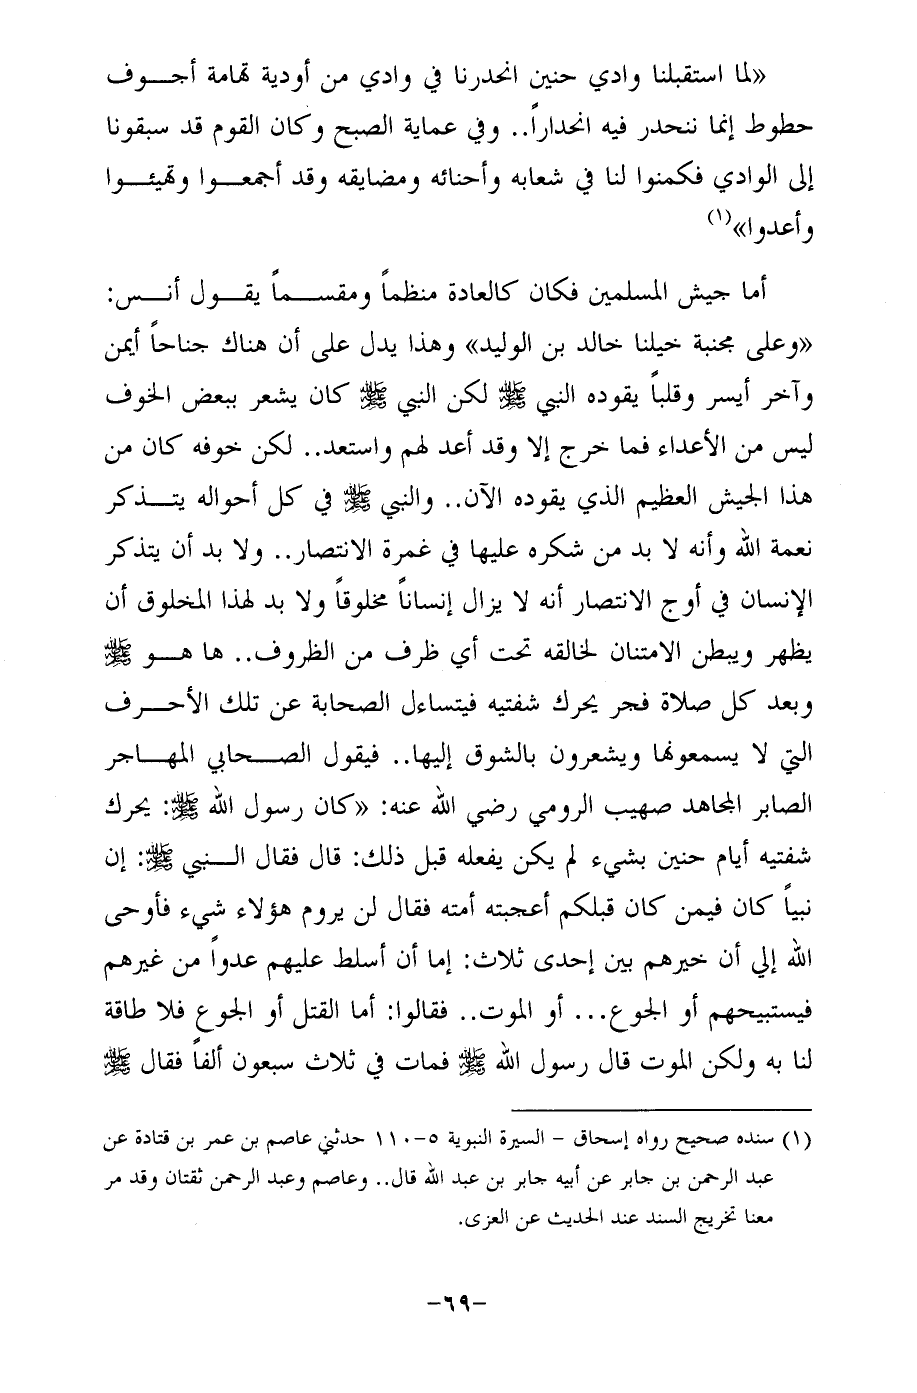 «لما استقبلنا وادي حنين انحدرنا في وادي من أودية تهامة أجـــوف
حطوط إنما ننحدر فيه انحداراً.. وفي عماية الصبح وكان القوم قد سبقونا
إلى الوادي فكمنوا لنا في شعابه وأحنائه ومضايقه وقد أجمعـــوا وتهيئـــوا
وأعدوا»(١)
أما جيش المسلمين فكان كالعادة منظماً ومقســـماً يقـــول أنـــس:
«وعلى مجنبة خيلنا خالد بن الوليد» وهذا يدل على أن هناك جناحاً أيمن
وآخر أيسر وقلباً يقوده النبي ﷺ لكن النبي ﷺ كان يشعر ببعض الخوف
ليس من الأعداء فما خرج إلا وقد أعد لهم واستعد.. لكن خوفه كان من
هذا الجيش العظيم الذي يقوده الآن.. والنبي ﷺ في كل أحواله يتـــذكر
نعمة الله وأنه لا بد من شكره عليها في غمرة الانتصار.. ولا بد أن يتذكر
الإنسان في أوج الانتصار أنه لا يزال إنساناً مخلوقاً ولا بد لهذا المخلوق أن
يظهر ويبطن الامتنان لخالقه تحت أي ظرف من الظروف.. ها هـــو ﷺ
وبعد كل صلاة فجر يحرك شفتيه فيتساءل الصحابة عن تلك الأحـــرف
التي لا يسمعونها ويشعرون بالشوق إليها.. فيقول الصـــحابي المهـــاجر
الصابر المجاهد صهيب الرومي رضي الله عنه: «كان رسول الله ﷺ: يحرك
شفتيه أيام حنين بشيء لم يكن يفعله قبل ذلك: قال فقال الـــنبي ﷺ: إن
نبياً كان فيمن كان قبلكم أعجبته أمته فقال لن يروم هؤلاء شيء فأوحى
الله إلي أن خيرهم بين إحدى ثلاث: إما أن أسلط عليهم عدواً من غيرهم
فيستبيحهم أو الجوع... أو الموت.. فقالوا: أما القتل أو الجوع فلا طاقة
لنا به ولكن الموت قال رسول الله ﷺ فمات في ثلاث سبعون ألفاً فقال ﷺ
(١) سنده صحيح رواه إسحاق – السيرة النبوية ٥-١١٠ حدثني عاصم بن عمر بن قتادة عن
عبد الرحمن بن جابر عن أبيه جابر بن عبد الله قال.. وعاصم وعبد الرحمن ثقتان وقد مر
معنا تخريج السند عند الحديث عن العزى.
-٦٩-